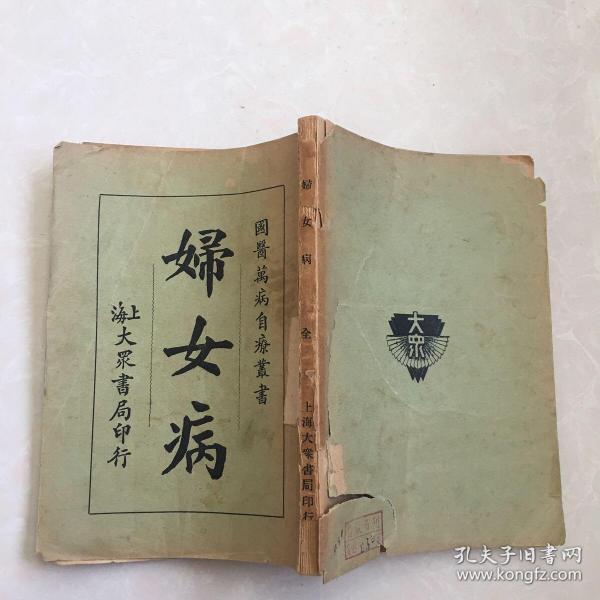 國醫萬病自療叢書
婦女病
上海大眾書局印行
婦女病 全
上海大眾書局印行
大眾
孔夫子旧书网
www.kongfz.com